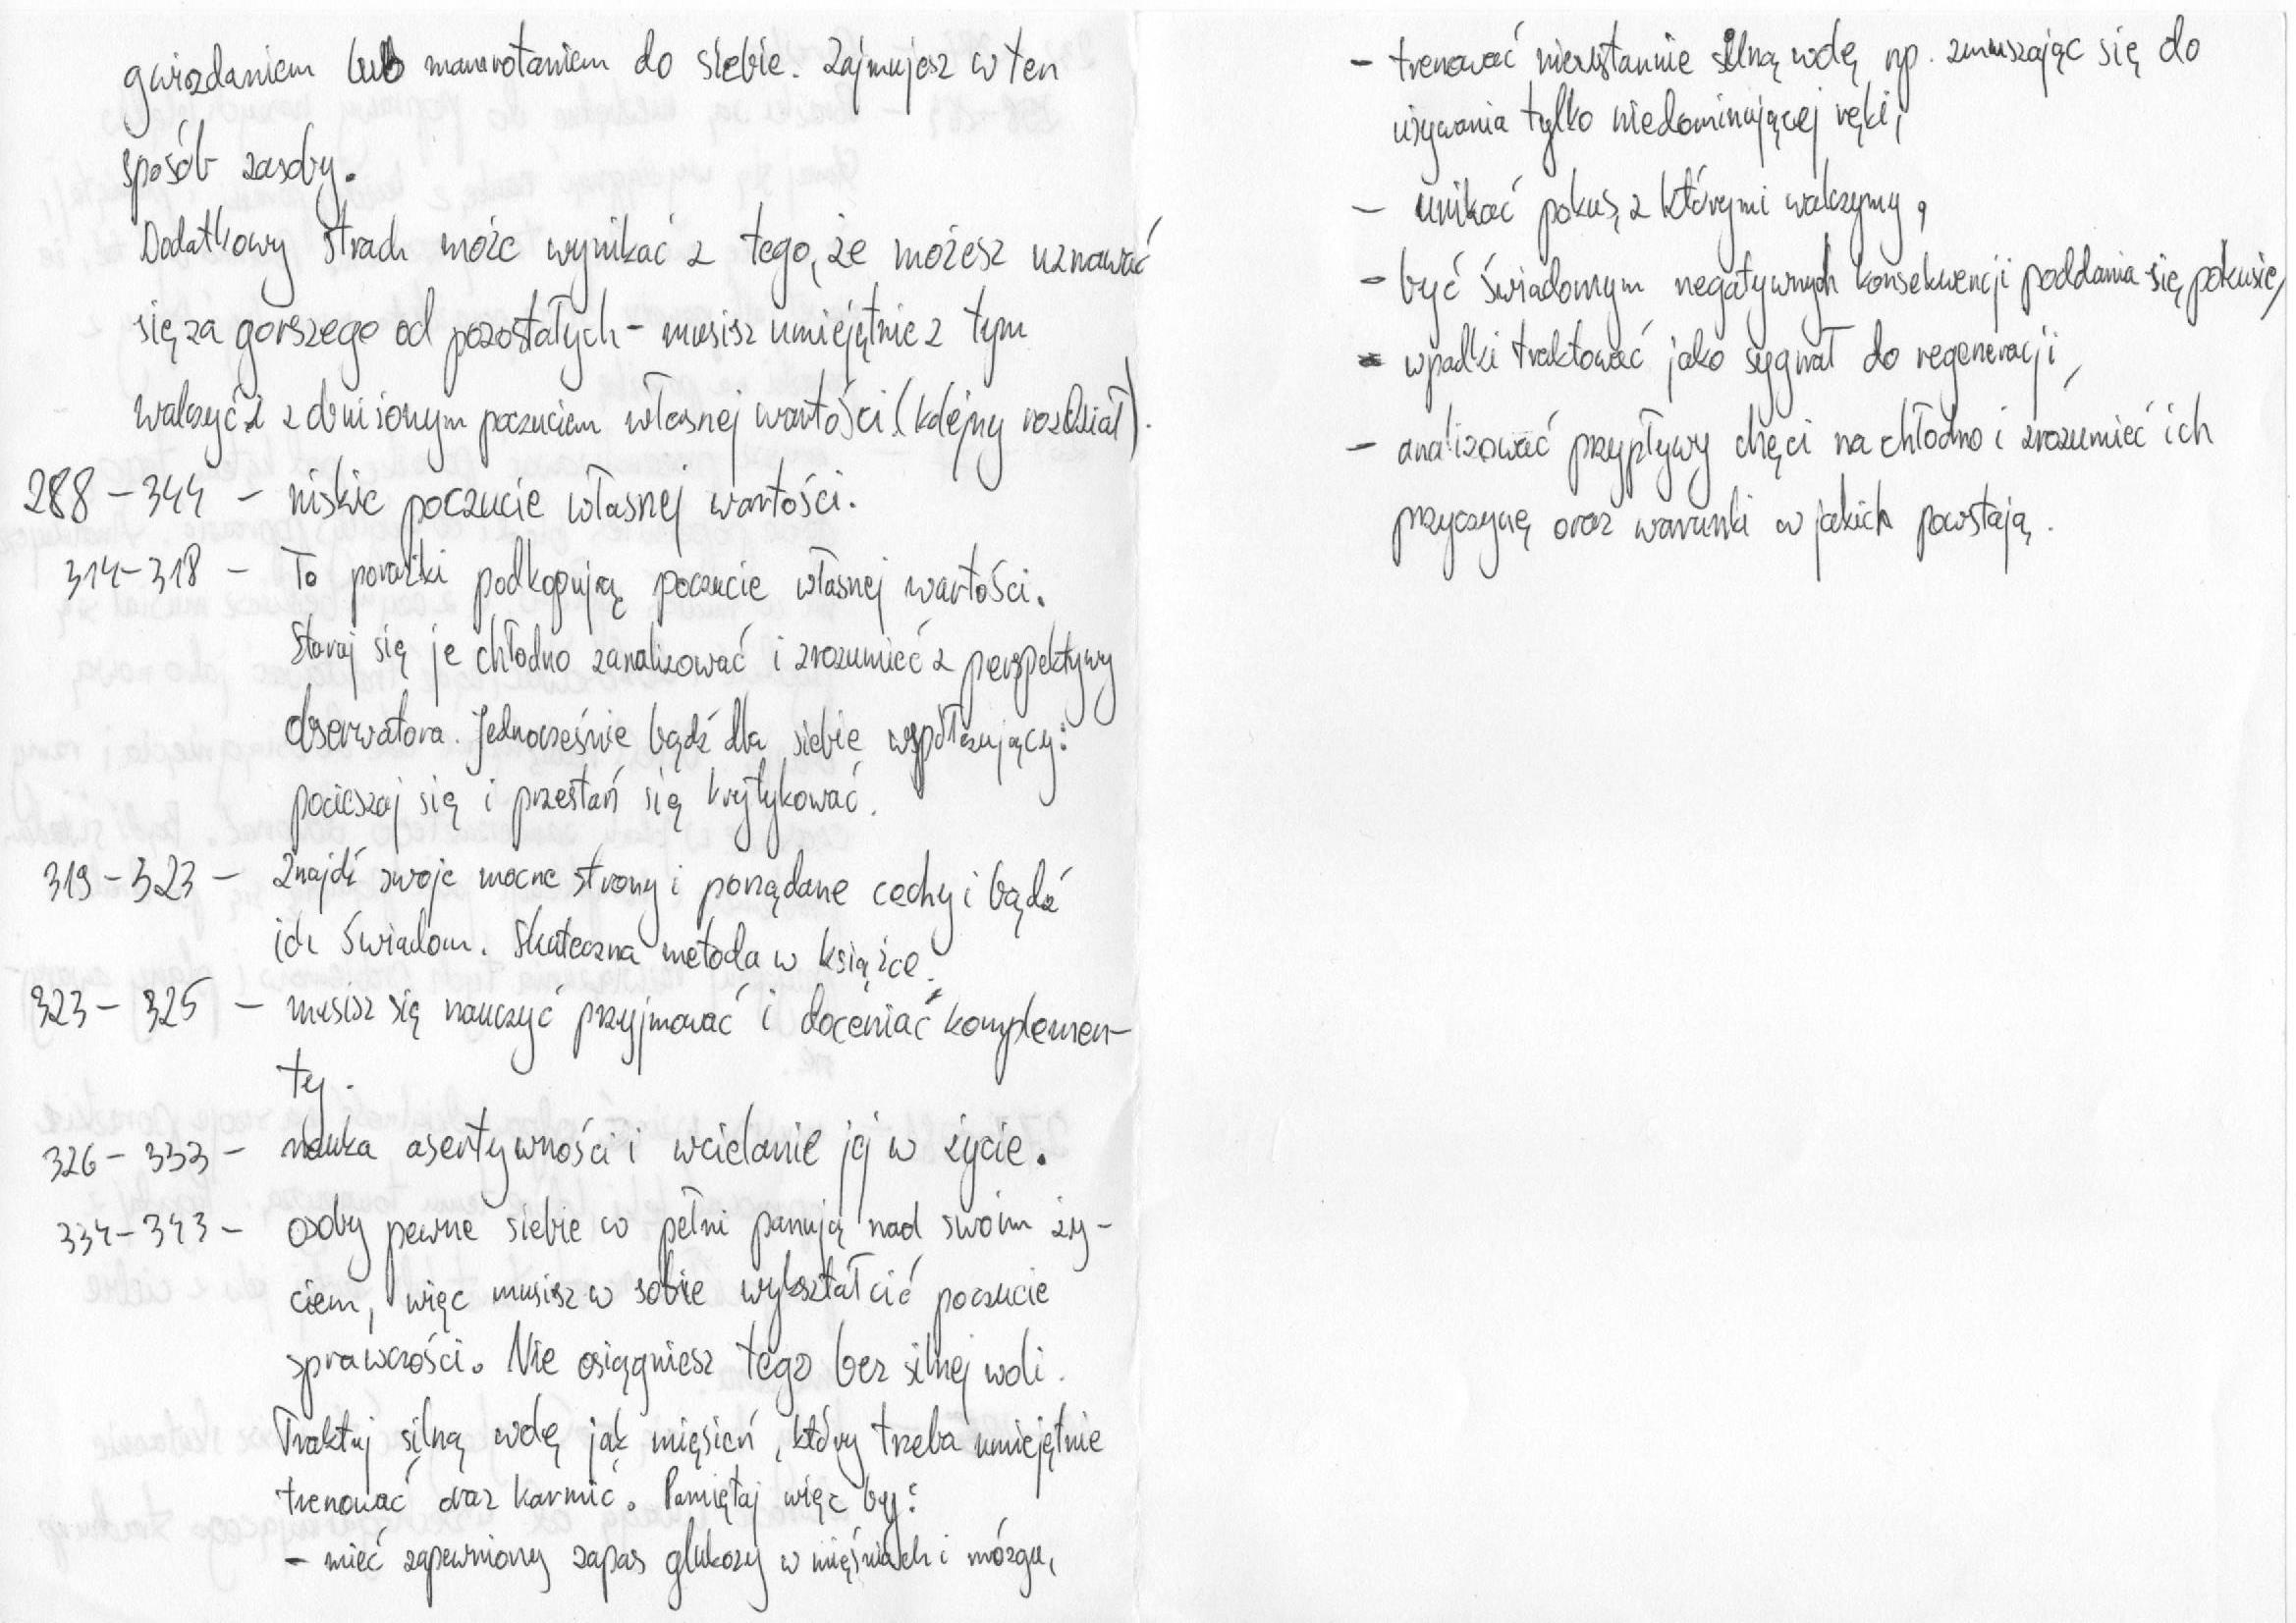 gwizdaniem lub mamrotaniem do siebie. Zajmujesz w ten
sposób zasoby.
Dodatkowy strach może wynikać z tego, że możesz uznawać
się za gorszego od pozostałych - musisz umiejętnie z tym
walczyć i z obniżonym poczuciem własnej wartości (kolejny rozdział).
288 - 344 - niskie poczucie własnej wartości.
314-318 - To porażki podkopują poczucie własnej wartości.
Staraj się je chłodno zanalizować i zrozumieć z perspektywy
obserwatora. Jednocześnie bądź dla siebie współczujący:
pocieszaj się i przestań się krytykować.
319 - 323 - Znajdź swoje mocne strony i porządane cechy i bądź
ich świadom. Skuteczna metoda w książce.
323 - 325 - musisz się nauczyć przyjmować i doceniać komplemen-
ty.
326 - 333 - nauka asertywności i wcielanie jej w życie.
334 - 343 - osoby pewne siebie w pełni panują nad swoim ży-
ciem, więc musisz w sobie wykształcić poczucie
sprawczości. Nie osiągniesz tego bez silnej woli.
Traktuj silną wolę jak mięsień, który trzeba umiejętnie
trenować oraz karmić. Pamiętaj więc by:
- mieć zapewniony zapas glukozy w mięśniach i mózgu,
- trenować nieustannie silną wolę np. zmuszając się do
używania tylko niedominującej ręki,
- unikać pokus, z którymi walczymy,
- być świadomym negatywnych konsekwencji poddania się pokusie,
- wpadki traktować jako sygnał do regeneracji,
- analizować przypływy chęci na chłodno i zrozumieć ich
przyczynę oraz warunki w jakich powstają.